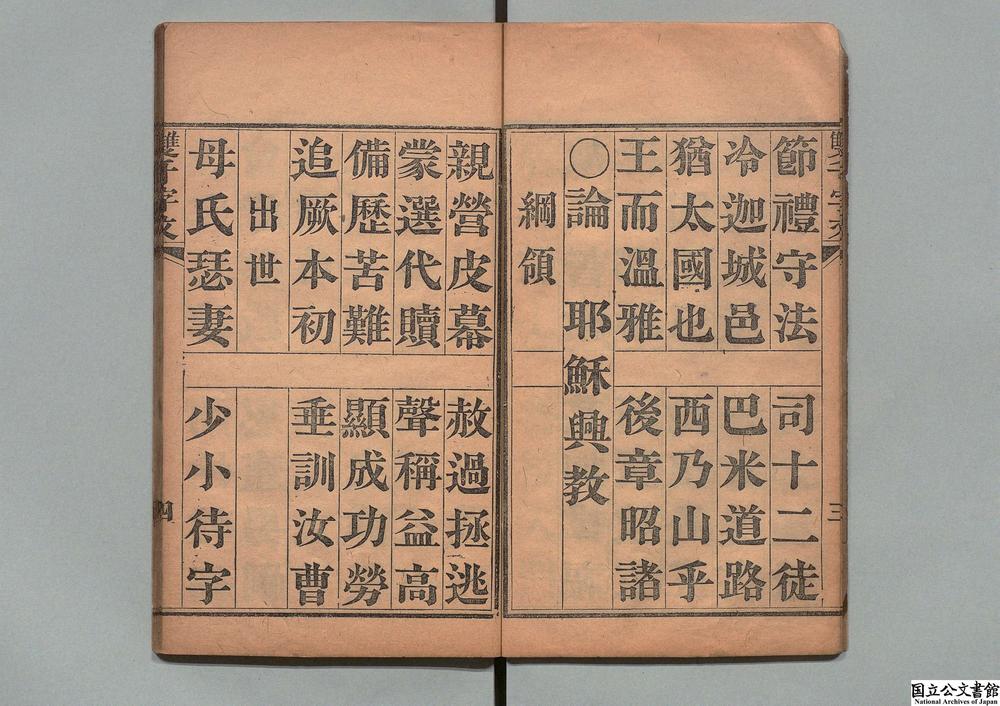 節禮守法 司十二徒
冷迦城邑 巴米道路
猶太國也 西乃山乎
王而溫雅 後章昭諸
〇論 耶穌興教
綱領
三
親營皮幕 赦過拯逃
蒙選代贖 聲稱益高
備歷苦難 顯成功勞
追厥本初 垂訓汝曹
出世
母氏瑟妻 少小待字
四
国立公文書館
National Archives of Japan